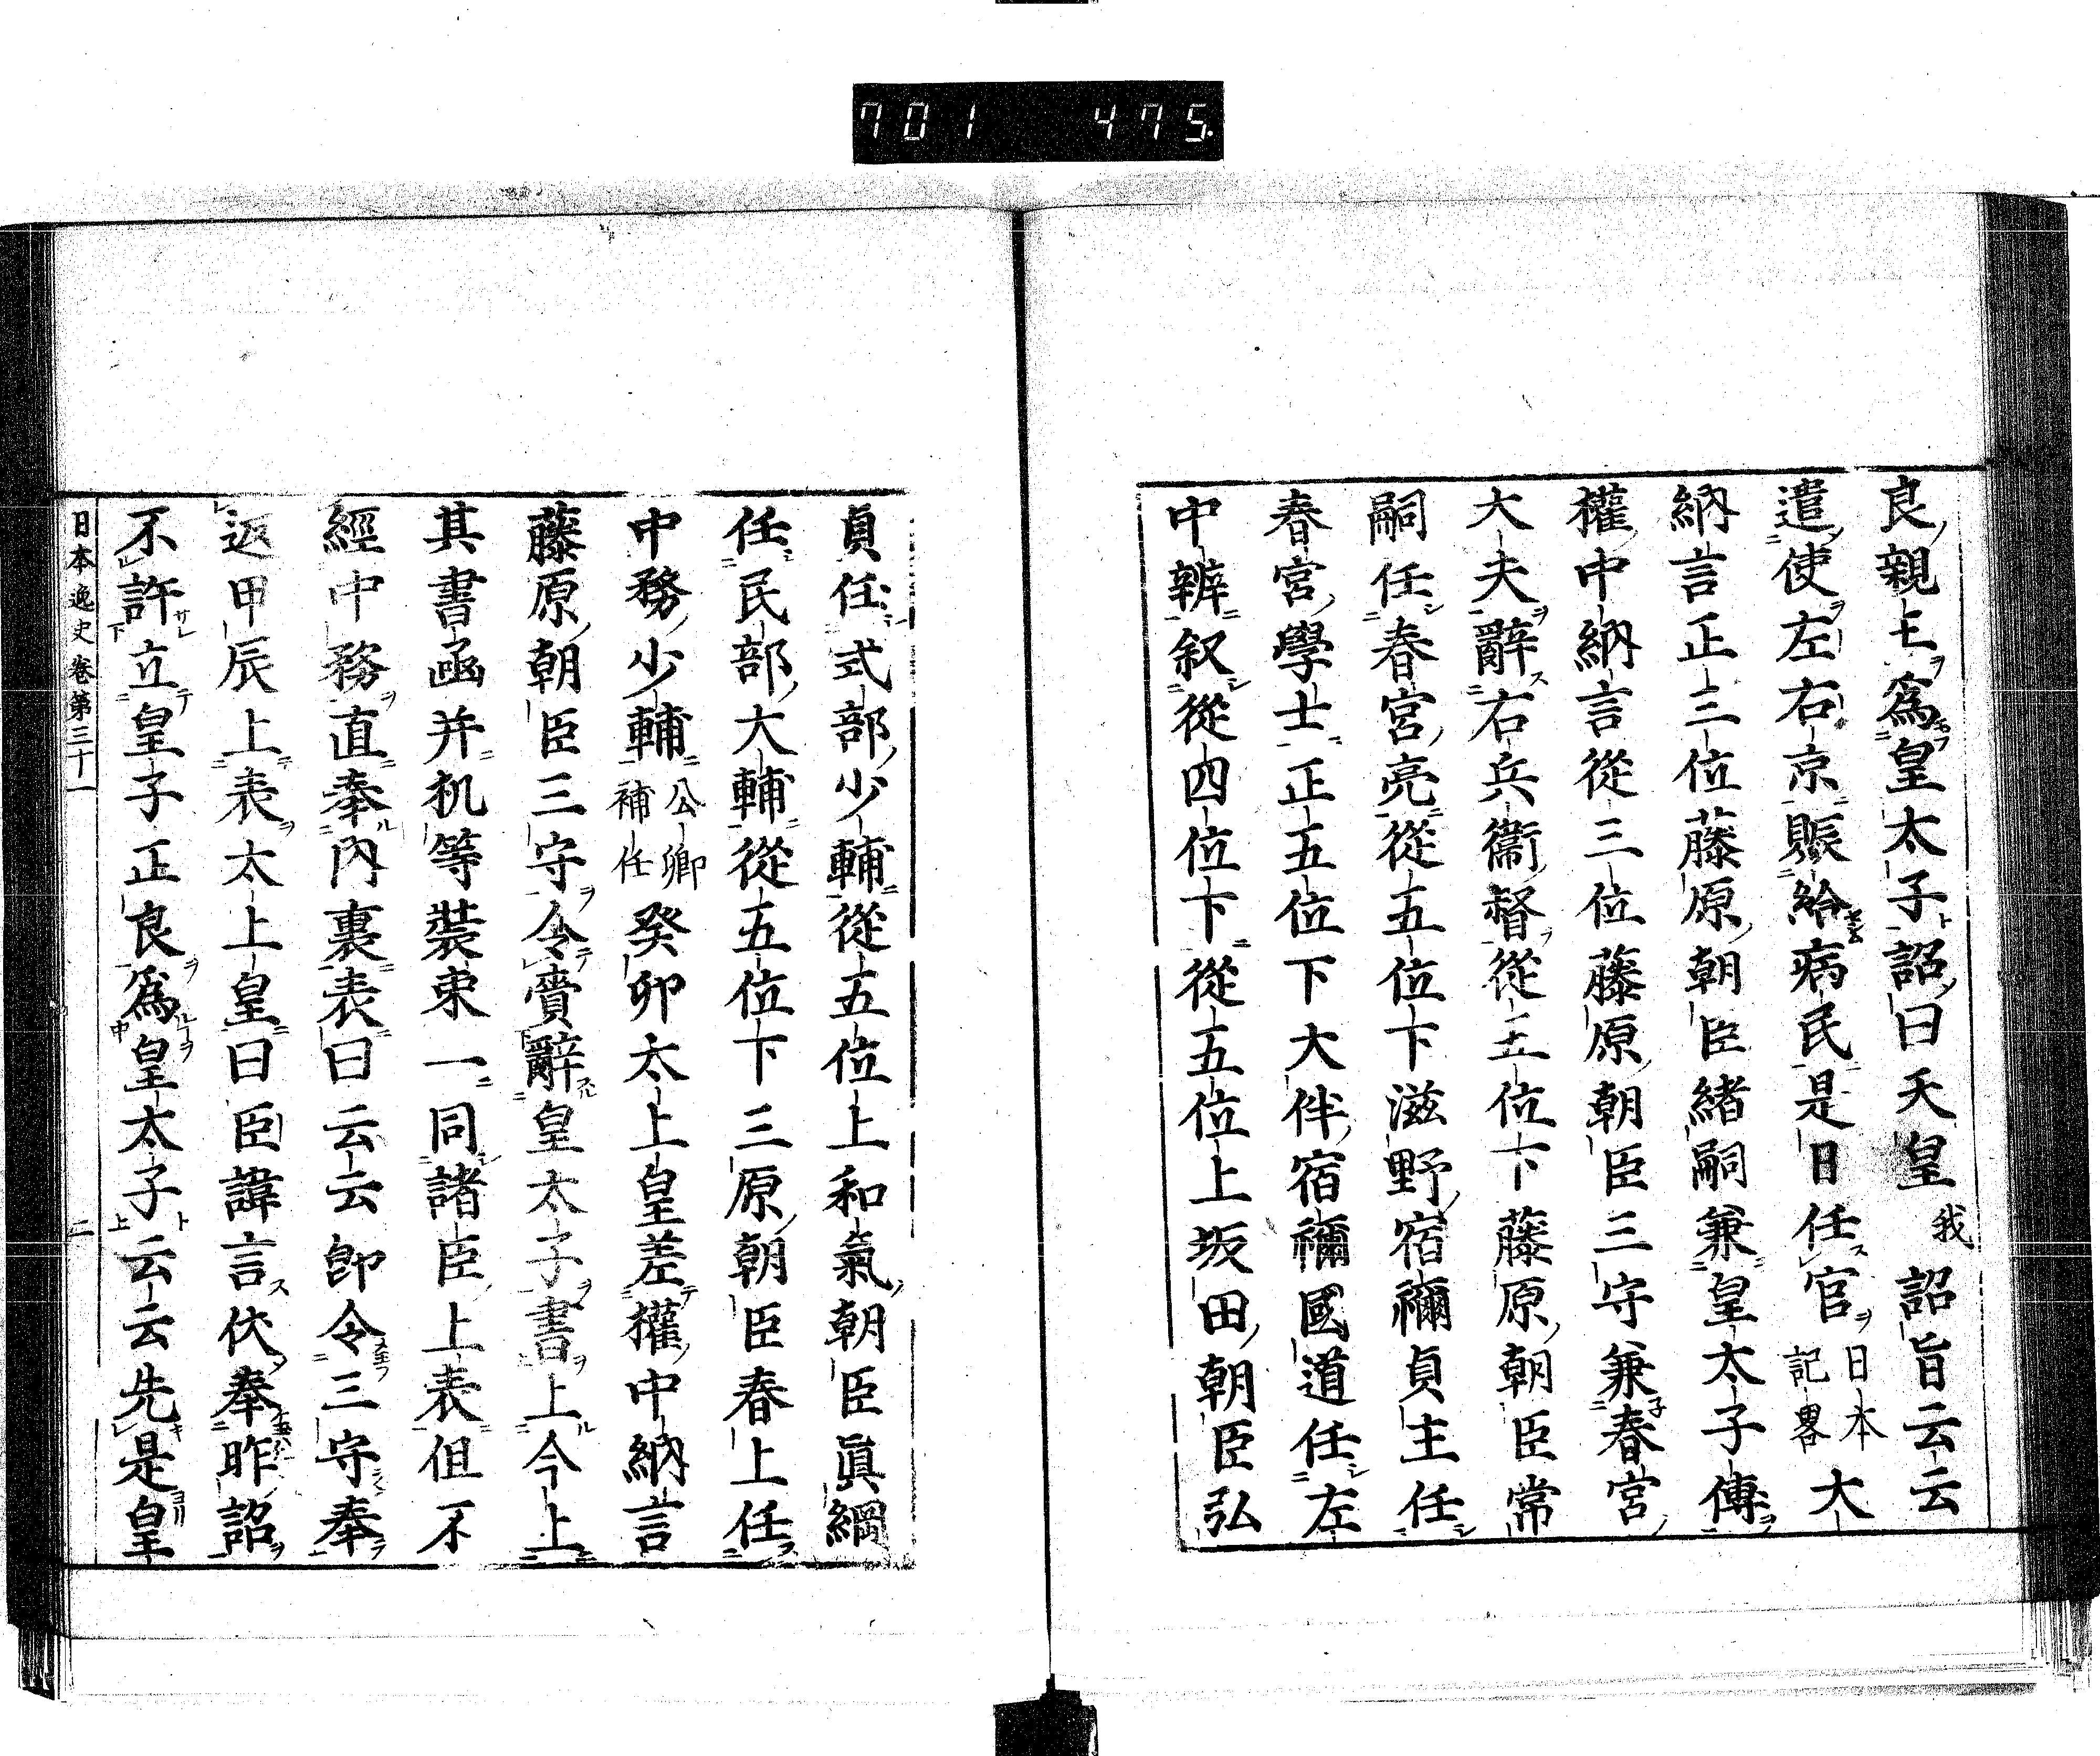 701 475
良親王爲皇太子詔曰天皇我詔旨云云
遣使左右京賑給病民是日任官日本記畧大
納言正三位藤原朝臣緒嗣兼皇太子傅
權中納言從三位藤原朝臣三守兼春宮
大夫辭右兵衞督從五位下藤原朝臣常
嗣任春宮亮從五位下滋野宿禰貞主任
春宮學士正五位下大伴宿禰國道任左
中辨叙從四位下從五位上坂田朝臣弘
貞任式部少輔從五位上和氣朝臣眞綱
任民部大輔從五位下三原朝臣春上任
中務少輔公卿補任癸卯太上皇差權中納言
藤原朝臣三守令賷辭皇太子書上今上
其書函并机等裝束一同諸臣上表但不
經中務直奉內裏表曰云云卽令三守奉
返甲辰上表太上皇曰臣諱言伏奉昨詔
不許立皇子正良爲皇太子云云先是皇
日本逸史卷第三十一 二